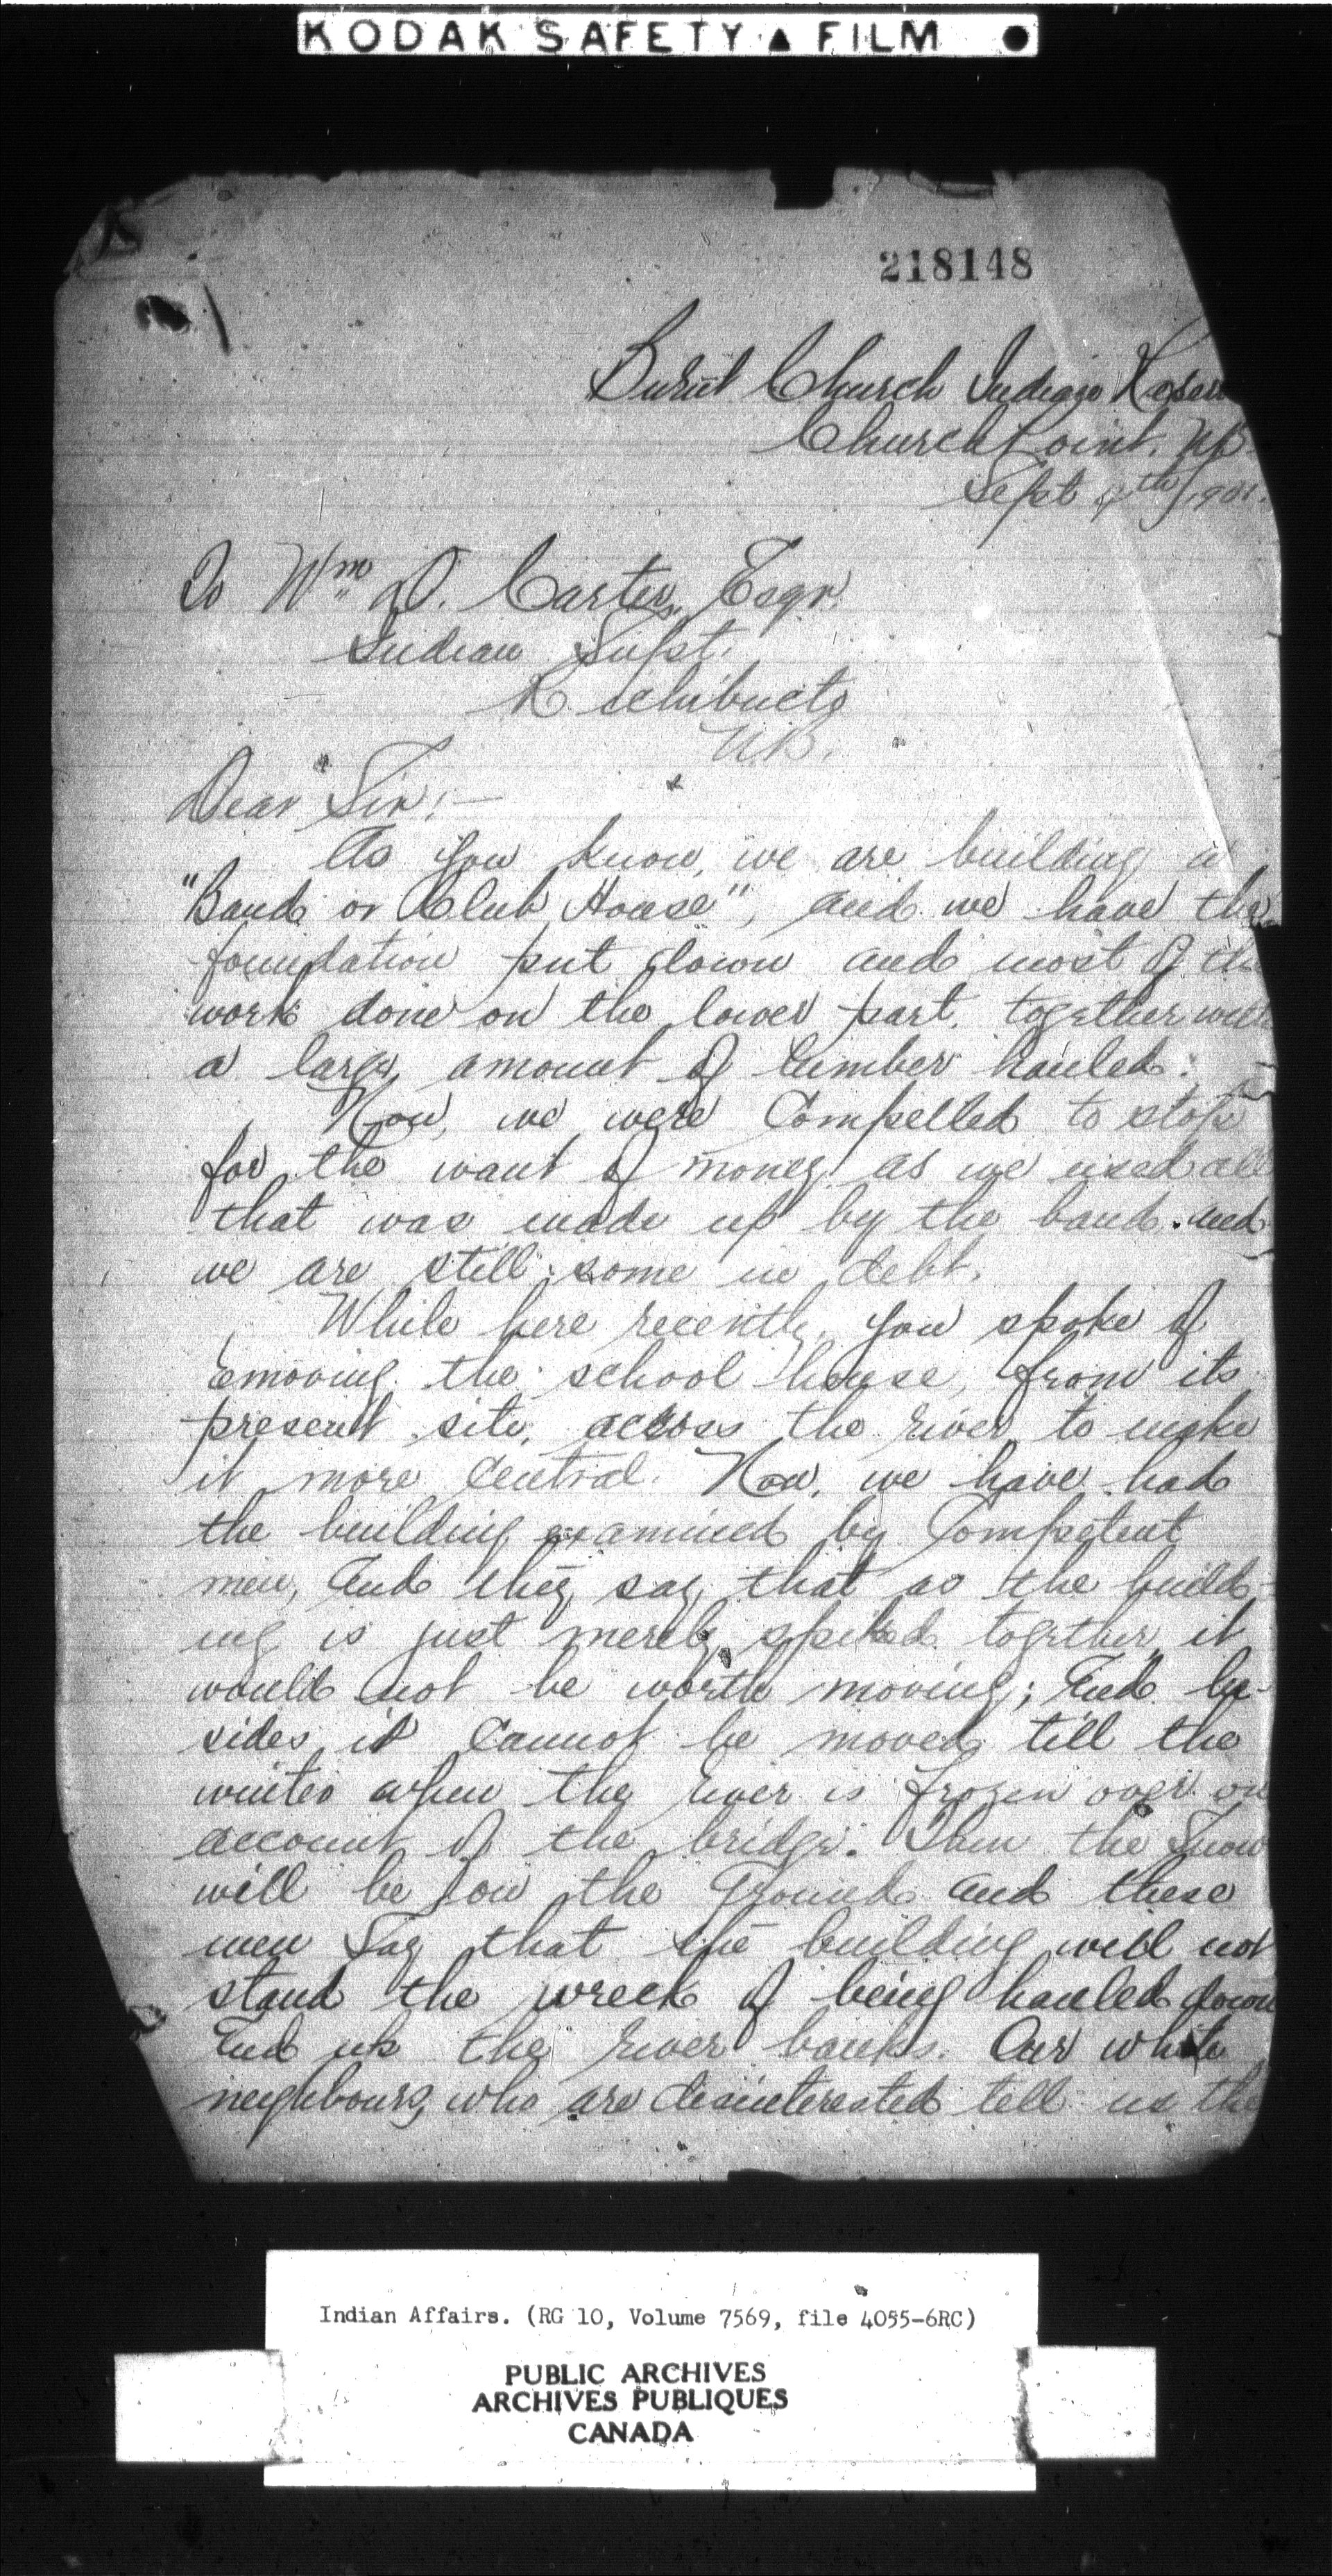 KODAK SAFETY ▲ FILM ●
218148
Burnt Church Indian Reser
Church Point, NB.
Sept 9th / 1901.
To Wm. D. Carter, Esqr.
Indian Supt.
Richibucto
N.B.
Dear Sir:—
As you know, we are building a
"Band or Club House", and we have the
foundation put down and most of the
work done on the lower part, together with
a large amount of lumber hauled.
Now, we were Compelled to stop
for the want of money as we used all
that was made up by the band and
we are still some in debt.
While here recently, you spoke of
removing the school house, from its
present site, across the river, to make
it more Central. Now, we have had
the building examined by Competent
men, and they say, that as the build-
ing is just merely spiked together, it
would not be worth moving; and be-
sides, it Cannot be moved till the
winter when the river is frozen over on
account of the bridge. Then the Snow
will be on the Ground and these
men Say that the building will not
stand the wreck of being hauled down
and up the river banks. Our white
neighbours, who are disinterested tell us the
Indian Affairs. (RG 10, Volume 7569, file 4055-6RC)
PUBLIC ARCHIVES
ARCHIVES PUBLIQUES
CANADA